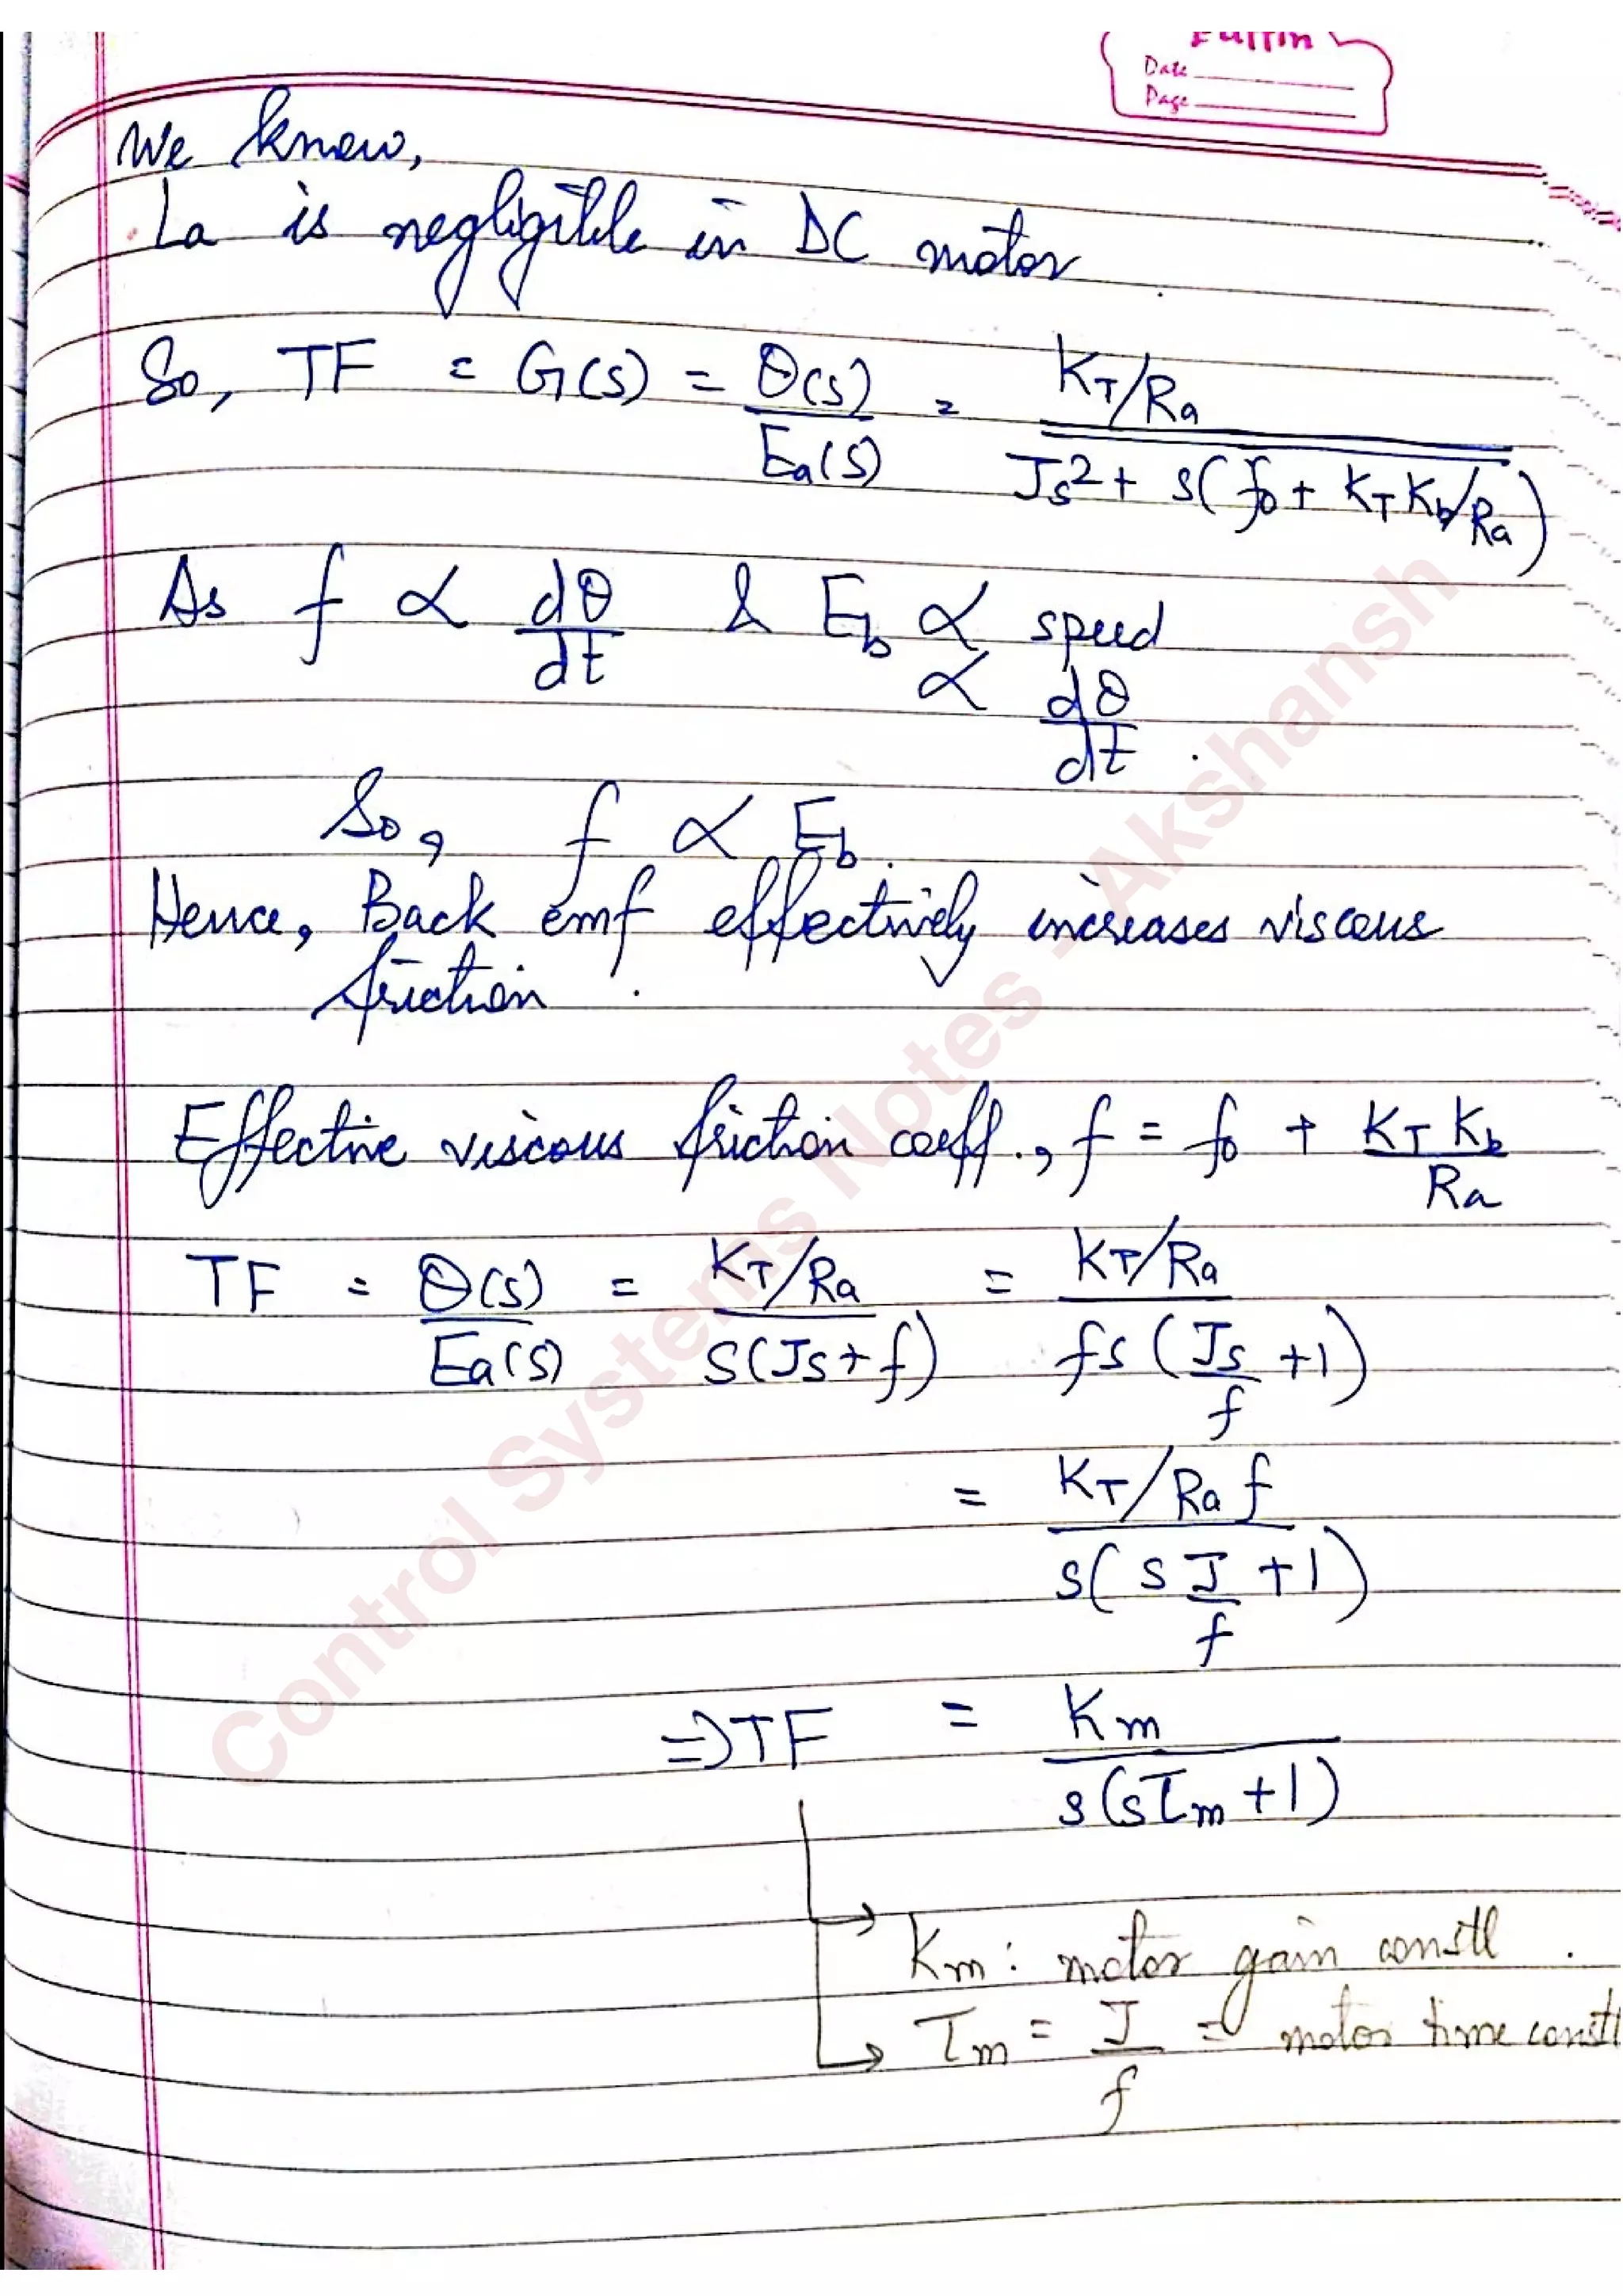 Puffin
Date
Page
We know,
La is negligible in DC motor
So, TF = G(s) = θ(s)/Ea(s) = (KT/Ra)/(Js² + s(f0 + KT Kb/Ra))
As f ∝ dθ/dt & Eb ∝ speed
∝ dθ/dt.
So, f ∝ Eb.
Hence, Back emf effectively increases viscous
friction.
Effective viscous friction coeff., f = f0 + KT Kb/Ra
TF = θ(s)/Ea(s) = (KT/Ra)/(s(Js+f)) = (KT/Ra)/(fs(Js/f +1))
= (KT/Ra f)/(s(s J/f +1))
⇒ TF = Km/(s(sτm+1))
Km: motor gain constt.
τm = J/f = motor time constt
Control Systems Notes - Akshansh